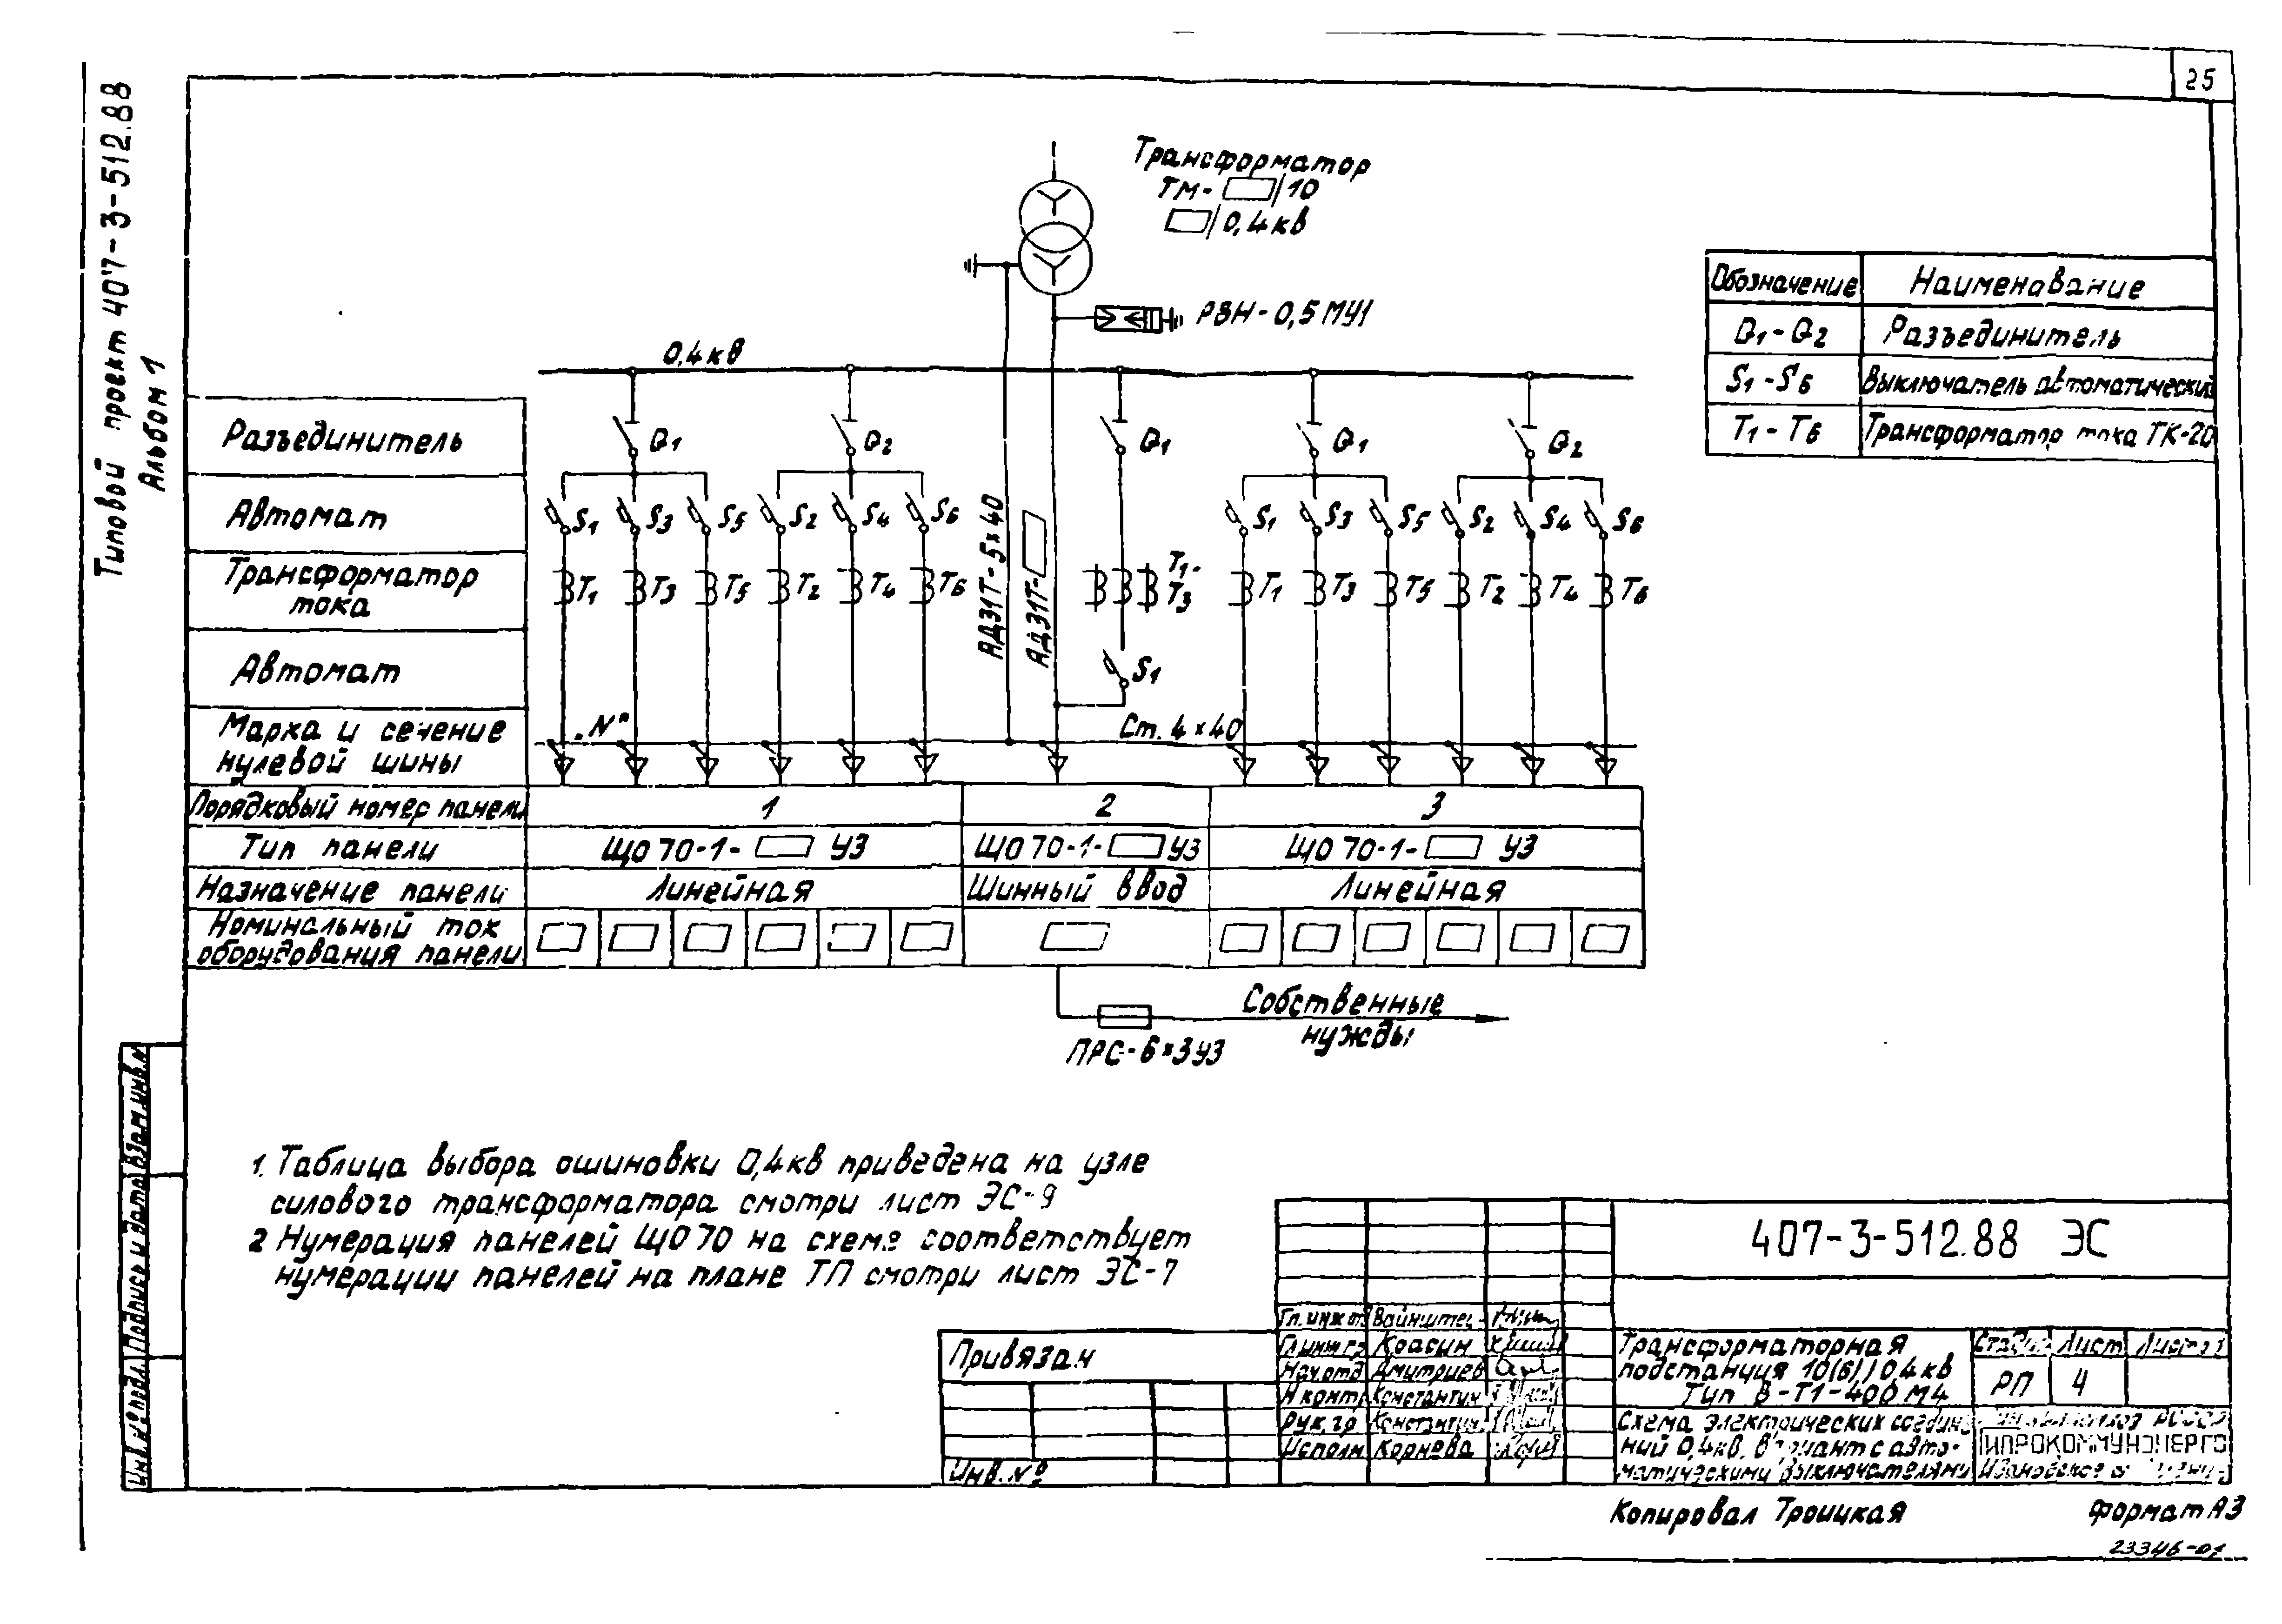 25
Типовой проект 407-3-512.88
Альбом 1
Трансформатор
ТМ- /10
/0,4кв
РВН-0,5 МУ1
Обозначение Наименование
Q1-Q2 Разъединитель
S1-S6 Выключатель автоматический
T1-T6 Трансформатор тока ТК-20
0,4кв
Разъединитель
Q1 Q2 Q1 Q1 Q2
Автомат
S1 S3 S5 S2 S4 S6 S1 S3 S5 S2 S4 S6
АД31Т-5×40
АД31Т-
Трансформатор
тока
T1 T3 T5 T2 T4 T6 T1-
T3 T1 T3 T5 T2 T4 T6
Автомат
S1
Марка и сечение
нулевой шины
„N"
Ст. 4×40
Порядковый номер панели 1 2 3
Тип панели ЩО70-1- У3 ЩО70-1- У3 ЩО70-1- У3
Назначение панели Линейная Шинный ввод Линейная
Номинальный ток
оборудования панели
Собственные
нужды
ПРС-6×3У3
1. Таблица выбора ошиновки 0,4кв приведена на узле
силового трансформатора смотри лист ЭС-9
2 Нумерация панелей ЩО70 на схеме соответствует
нумерации панелей на плане ТП смотри лист ЭС-7
Взам.инв.№
Подпись и дата
Инв.№подл.
407-3-512.88 ЭС
Привязан
Инв.№
Гл.инж.
Гл.инж. Красин
Нач.отд Дмитриев
Н.контр Константин
Рук.гр Константин
Исполн Корнева
Трансформаторная
подстанция 10(6)/0,4кв
Тип В-Т1-400М4
Стадия Лист Листов
РП 4
Схема электрических соедине-
ний 0,4кв. Вариант с авто-
матическими выключателями
ГИПРОКОММУНЭНЕРГО
Копировал Троицкая
Формат А3
23346-01